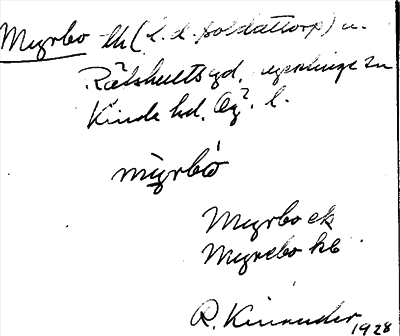 Myrbo lh (f.d. soldattorp) u.
Rälshultsgd,
Kinda hd, Ög. l.
mỳrbò
Myrbo ek
Myrebo hb
R. Kinander 1928